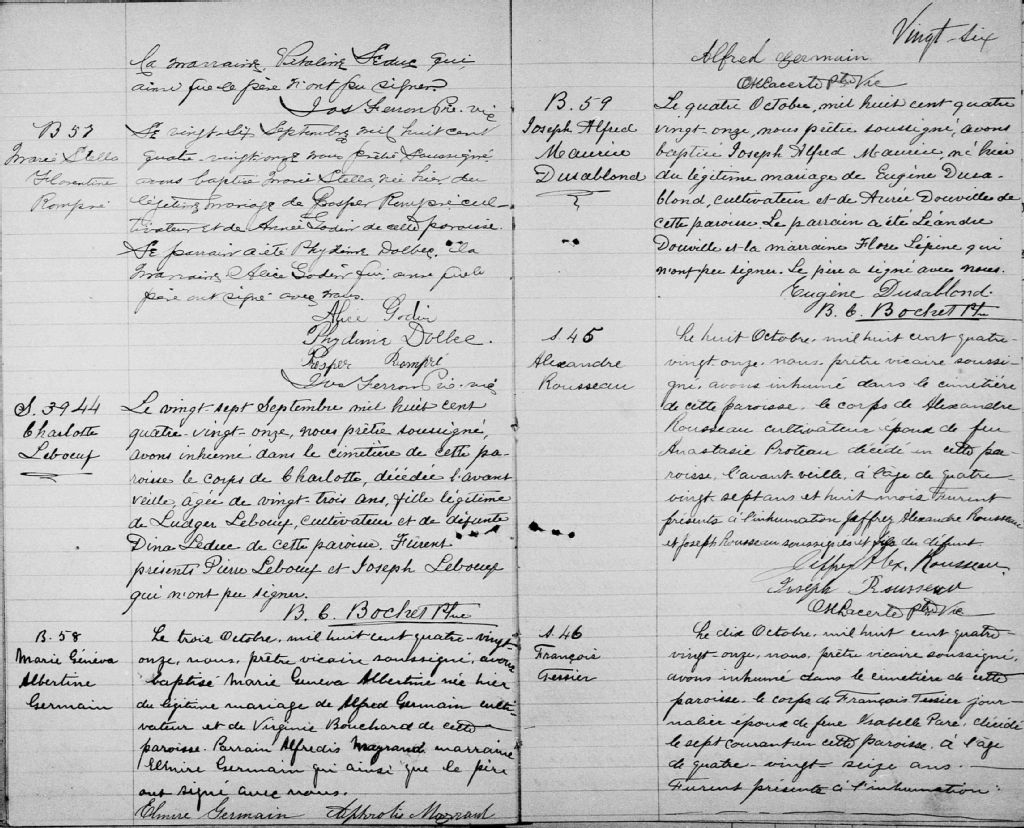 la marraine, Vitaline Leduc qui,
ainsi que le père n'ont pu signer.
Jos Ferron Ptre. vic
B 57
Marie Stella
Florentine
Rompré
Le vingt-six Septembre mil huit cent
quatre-vingt onze nous prêtre soussigné
avons baptisé Marie Stella, née hier du
légitime mariage de Prosper Rompré cul-
tivateur et de Annie Godin de cette paroisse.
Le parrain a été Phydime Dolbec, la
marraine Alice Godin qui, ainsi que le
père ont signé avec nous.
Alice Godin
Phydime Dolbec.
Prosper Rompré
Jos Ferron Ptre. vic
S. 39 44
Charlotte
Leboeuf
Le vingt-sept Septembre mil huit cent
quatre-vingt-onze, nous prêtre soussigné,
avons inhumé dans le cimetière de cette pa-
roisse le corps de Charlotte, décédée l'avant
veille, âgée de vingt-trois ans, fille légitime
de Ludger Leboeuf, cultivateur et de défunte
Dina Leduc de cette paroisse. Furent
présents Pierre Leboeuf et Joseph Leboeuf
qui n'ont pu signer.
B. C. Bochet Ptre
B. 58
Marie Géneva
Albertine
Germain
Le trois Octobre, mil huit cent quatre-vingt-
onze, nous, prêtre vicaire soussigné, avons
baptisé Marie Geneva Albertine née hier
du légitime mariage de Alfred Germain culti-
vateur et de Virginie Bouchard de cette
paroisse. Parrain Alfredis Mayrand marraine
Elmire Germain qui ainsi que le père
ont signé avec nous.
Elmire Germain Mayrand
Vingt-six
Alfred Germain
Lacerte Ptre Vic
B. 59
Joseph Alfred
Maurice
Dusablond
Le quatre Octobre, mil huit cent quatre
vingt-onze, nous prêtre soussigné, avons
baptisé Joseph Alfred Maurice, né hier
du légitime mariage de Eugène Dusa-
blond, cultivateur et de Aurée Douville de
cette paroisse. Le parrain a été Léandre
Douville et la marraine Flore Lépine qui
n'ont pu signer. Le père a signé avec nous.
Eugène Dusablond.
B. C. Bochet Ptre
S. 45
Alexandre
Rousseau
Le huit Octobre, mil huit cent quatre-
vingt onze, nous, prêtre vicaire soussi-
gné, avons inhumé dans le cimetière
de cette paroisse, le corps de Alexandre
Rousseau cultivateur époux de feu
Anastasie Proteau décédé en cette pa-
roisse, l'avant veille, à l'âge de quatre-
vingt sept ans et huit mois. Furent
présents à l'inhumation Jeffrey Alexandre Rousseau
et Joseph Rousseau soussignés et fils du défunt.
Jeffrey Alex. Rousseau.
Joseph Rousseau
Lacerte Ptre Vic
S. 46
François
Tessier
Le dix Octobre, mil huit cent quatre-
vingt-onze, nous, prêtre vicaire soussigné,
avons inhumé dans le cimetière de cette
paroisse, le corps de François Tessier jour-
nalier époux de feue Isabelle Paré, décédé
le sept courant en cette Paroisse, à l'âge
de quatre-vingt seize ans.
Furent présents à l'inhumation: